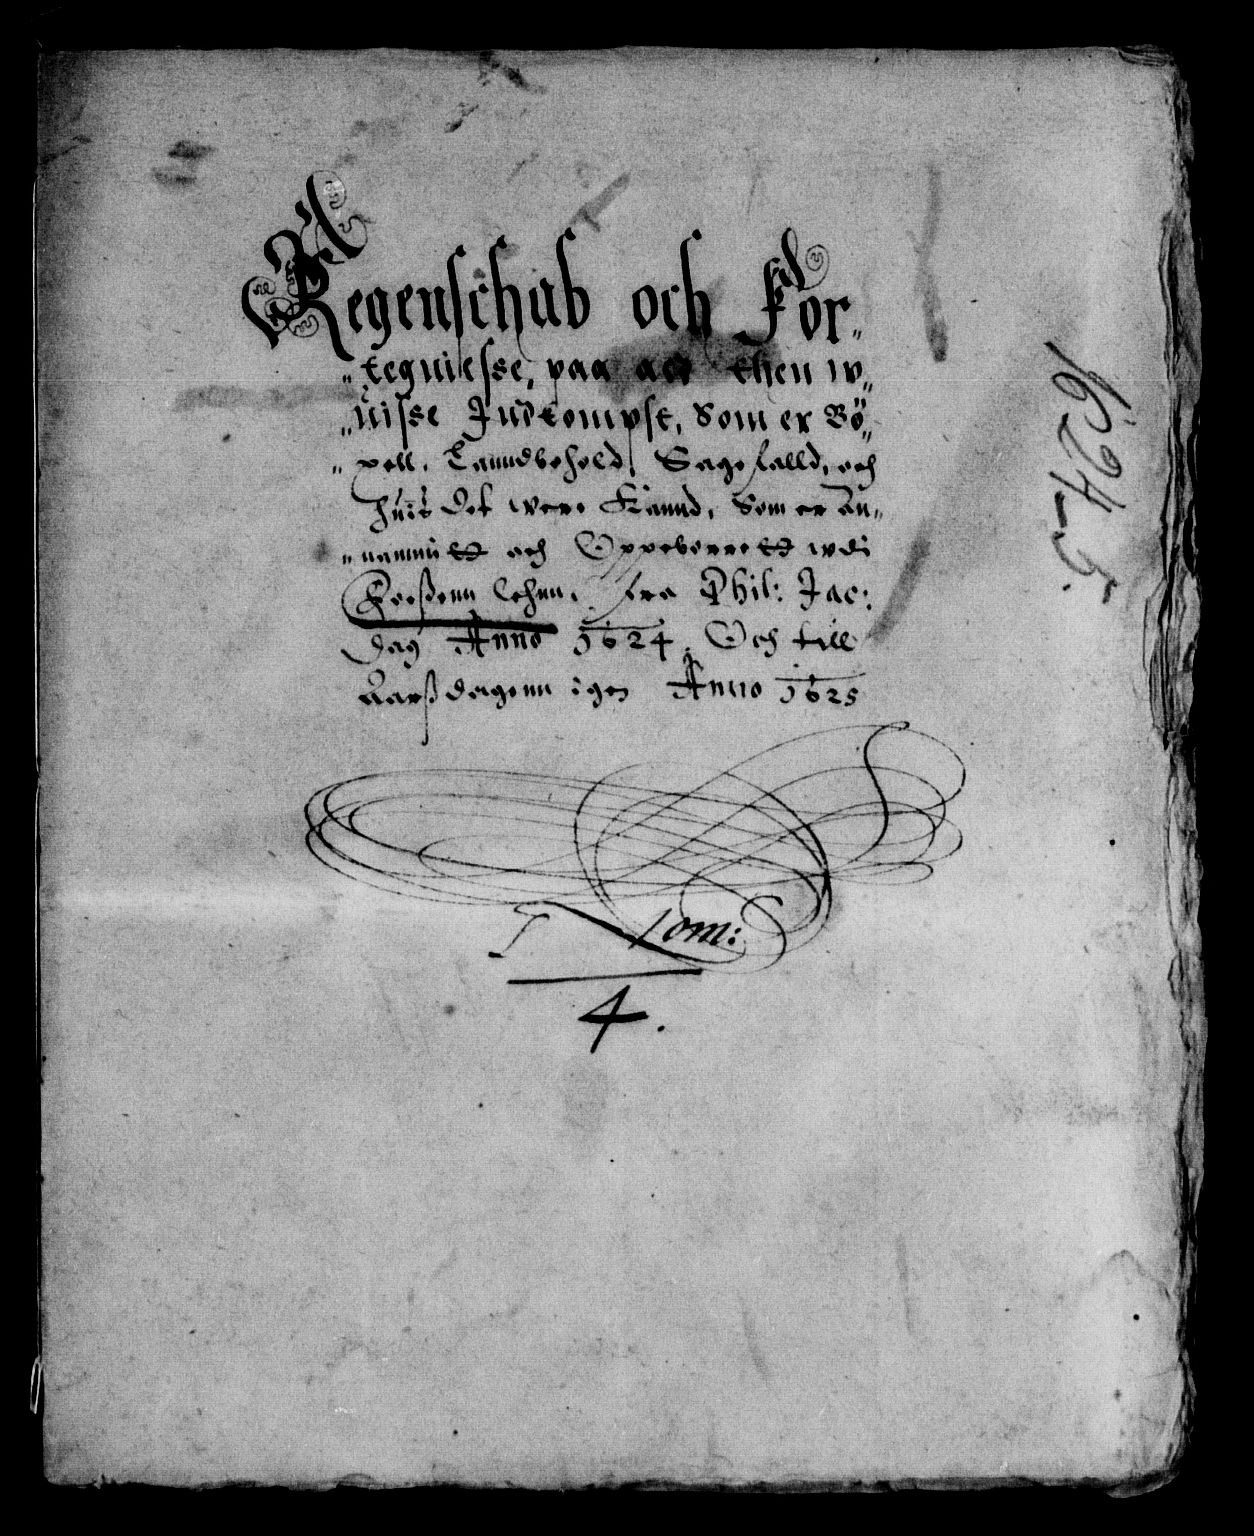 Regenschab och For-
tegnielse, paa all then w-
uisse Indkompst, Som er Bø-
xell, Lanndbohold, Sagefalld, och
huis det were kannd, Som er An-
nammitt och Oppeborrett wdi
Leßøenn lehnn, fra Phil: Jac:
dag Anno 1624, Och till
Aarßdagenn igen Anno 1625
I Tom:
4.
1624-25.